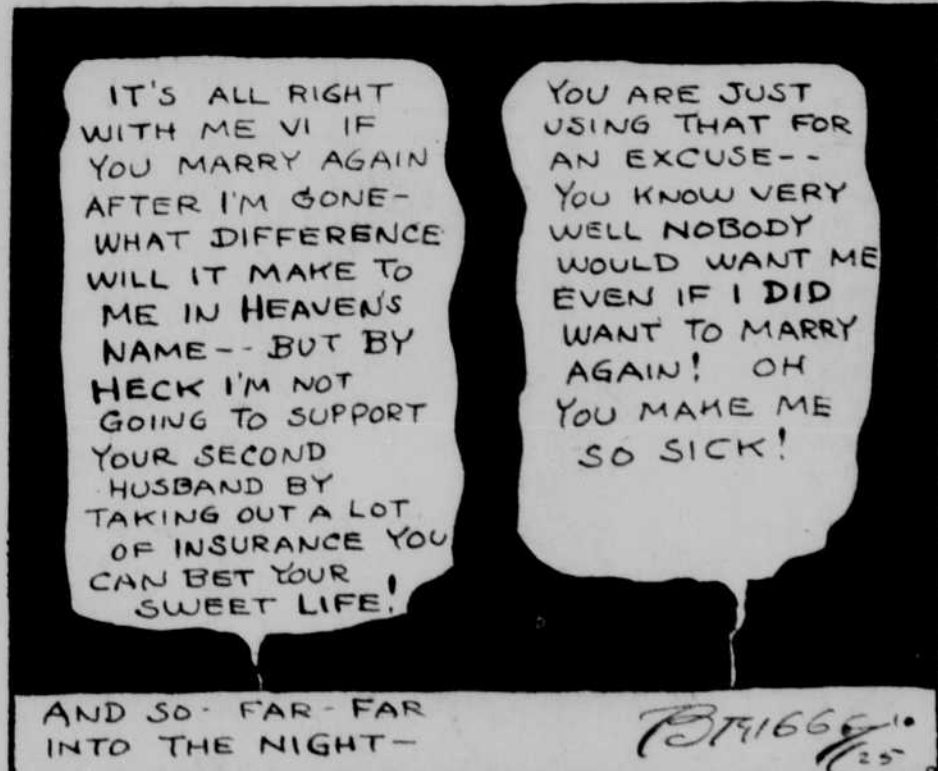 IT'S ALL RIGHT
WITH ME VI IF
YOU MARRY AGAIN
AFTER I'M GONE-
WHAT DIFFERENCE
WILL IT MAKE TO
ME IN HEAVEN'S
NAME-- BUT BY
HECK I'M NOT
GOING TO SUPPORT
YOUR SECOND
HUSBAND BY
TAKING OUT A LOT
OF INSURANCE YOU
CAN BET YOUR
SWEET LIFE!
YOU ARE JUST
USING THAT FOR
AN EXCUSE--
YOU KNOW VERY
WELL NOBODY
WOULD WANT ME
EVEN IF I DID
WANT TO MARRY
AGAIN! OH
YOU MAKE ME
SO SICK!
AND SO - FAR - FAR
INTO THE NIGHT-
BRIGGS
10
25